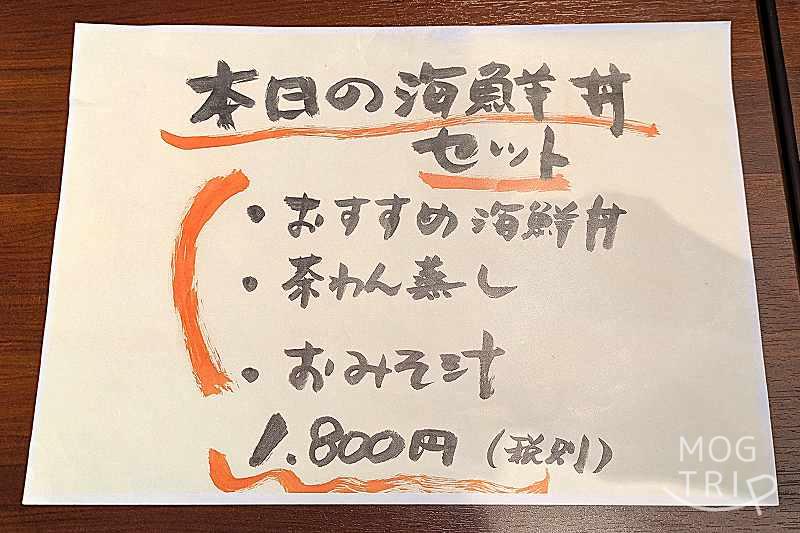 本日の海鮮丼
セット
・おすすめ海鮮丼
・茶わん蒸し
・おみそ汁
1.800円（税別）
MOG
TRIP